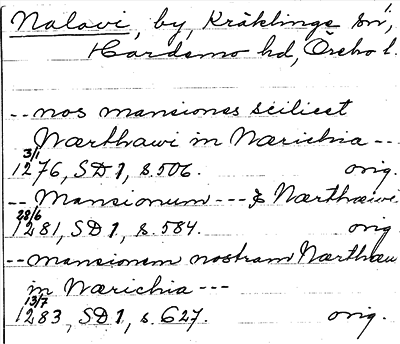 Nalavi, by, Kräklinge sn,
Hardemo hd, Örebro l.
-- nos mansiones scilicet
Nærthawi in Nærichia --
3/1
1276, SD 1, s. 506. orig.
-- Mansionum --- & Nærthæwi
28/6
1281, SD 1, s. 584. orig
-- mansionem nostram Nærthæw
in Nærichia ---
13/7
1283, SD 1, s. 627. orig.